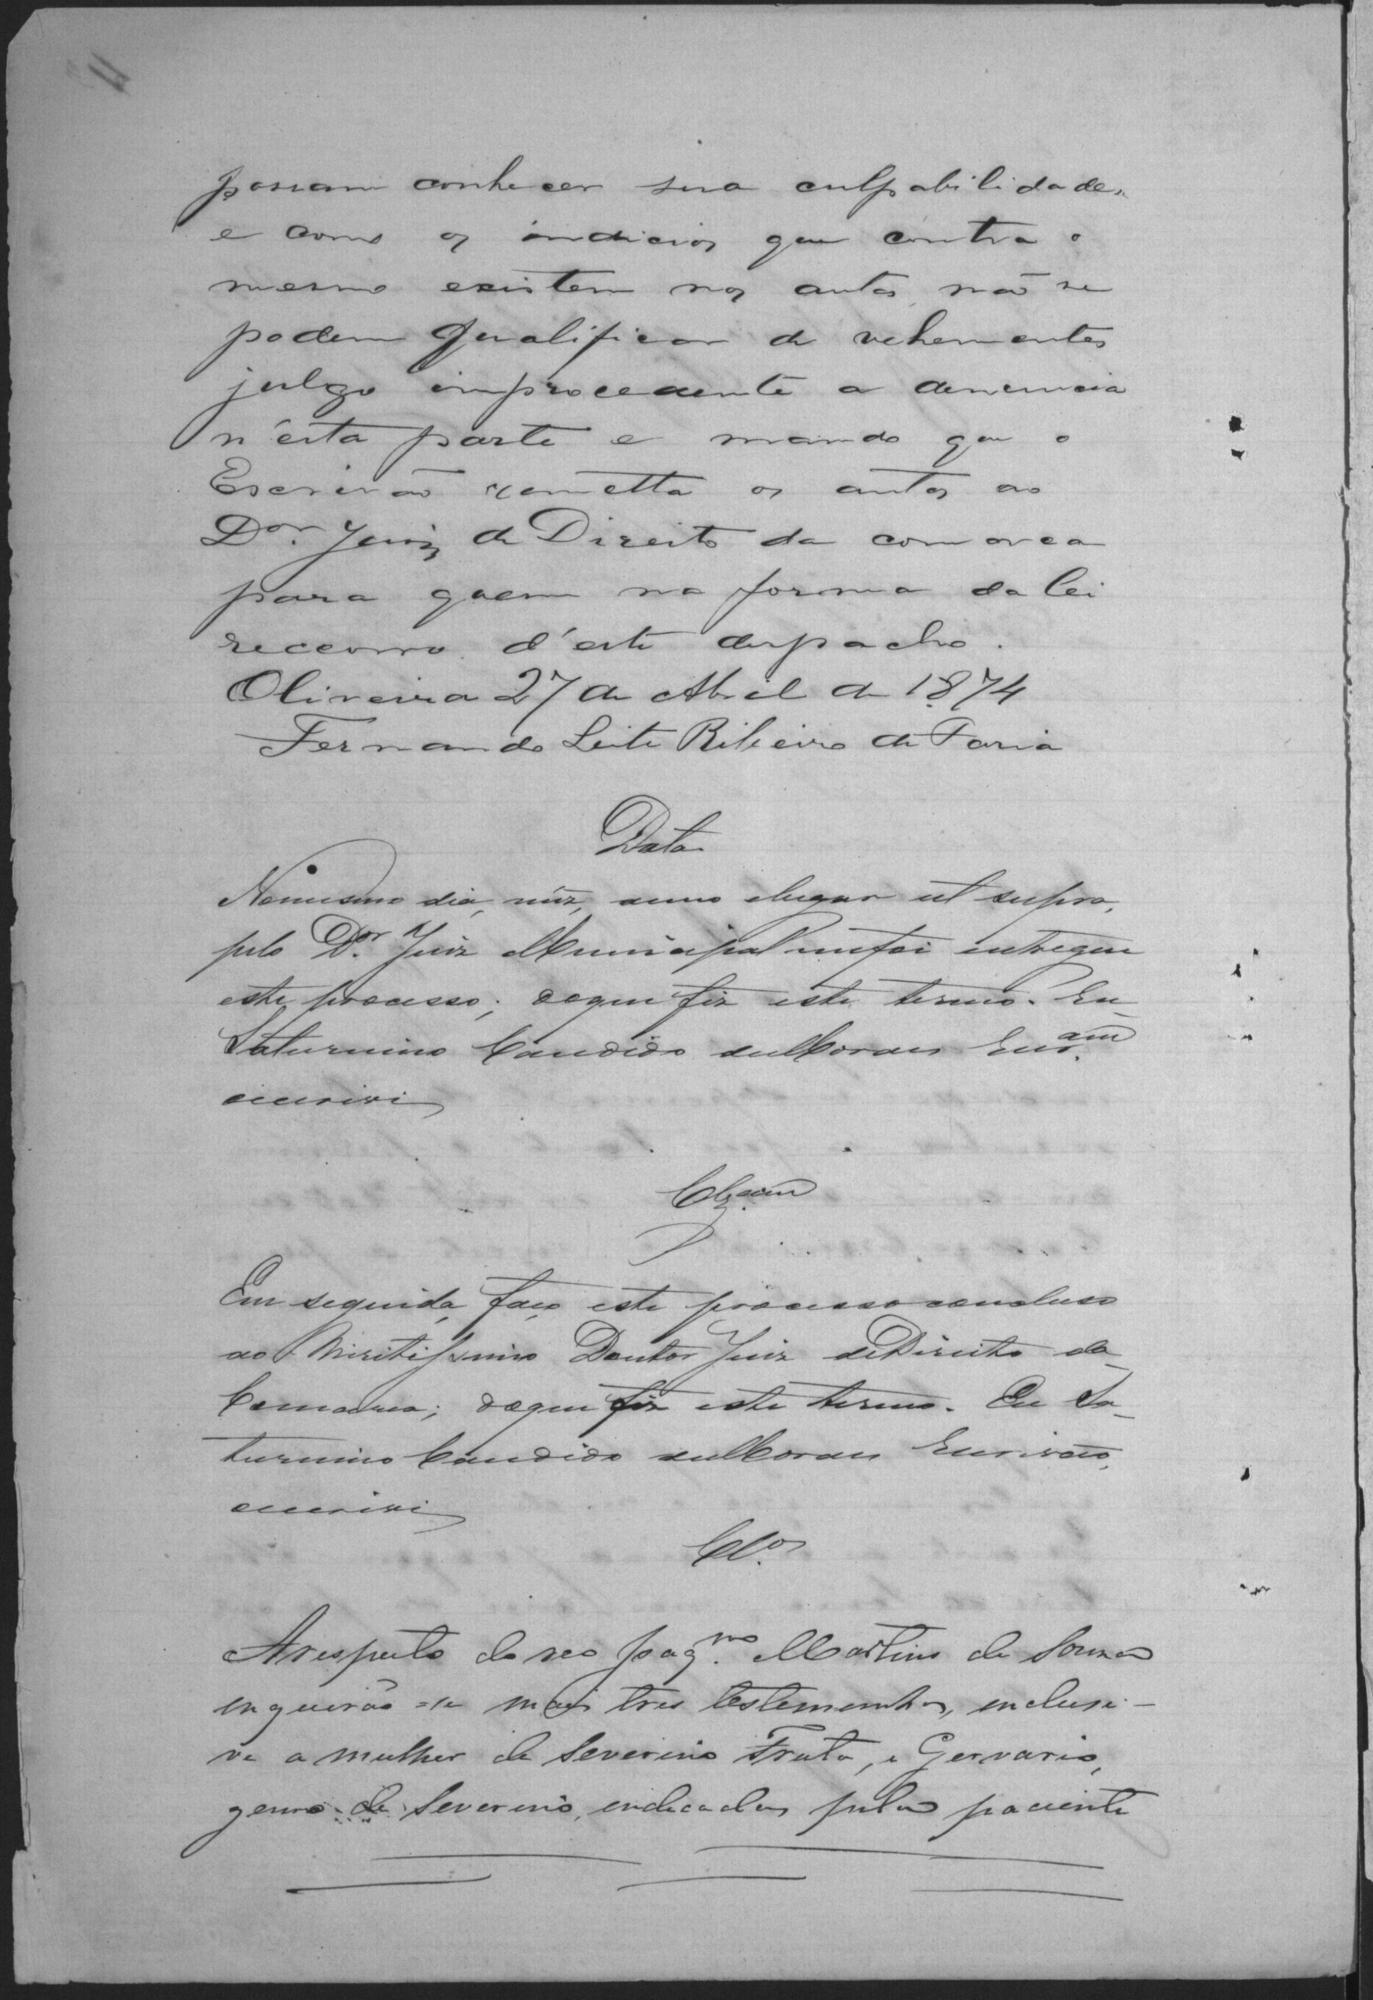 possam conhecer sua culpabilidade,
e como os indicios que contra o
mesmo existem nos autos não se
podem qualificar de vehementes
julgo improcedente a denuncia
n'esta parte e mando que o
Escrivão remetta os autos ao
Dor. Juiz de Direito da comarca
para quem na forma da lei
recorro d'este despacho.
Oliveira 27 de Abril de 1874
Fernando Leite Ribeiro de Faria
Data
No mesmo dia, mez, anno e lugar ut supra,
pelo Dor. Juiz Municipal me foi entregue
este processo; do que fiz este termo. Eu
Saturnino Candido de Moraes Escr.am
escrivi
Clzam
Em seguida, faço este processo concluso
ao Miritissimo Doutor Juiz de Direito da
Comarca; do que fiz este termo. Eu Sa-
turnino Candido de Moraes Escrivão,
escrivi
Clos.
A respeito do reo Joaq.mo Martins de Souza
inqueirão-se mais tres testemunhas, inclusi-
ve a mulher de Severino Fruta, e Gervasio,
genro de Severino, indicados pelo paciente